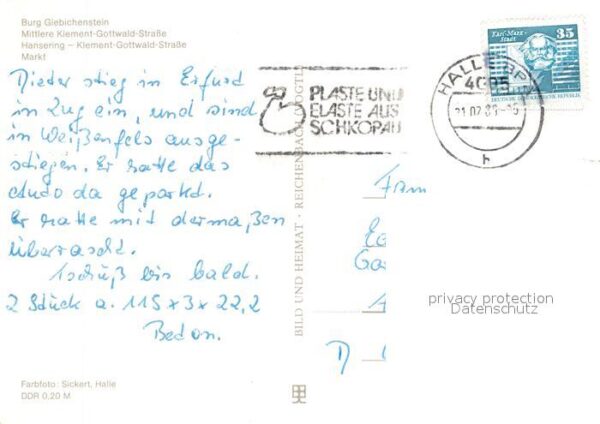 Burg Giebichenstein
Mittlere Klement-Gottwald-Straße
Hansering – Klement-Gottwald-Straße
Markt
Dieter stieg in Erfurd
in Zug ein, und sind
in Weißenfels ausge-
stiegen. Er hatte das
Auto da geparkt.
Er hatte mit dermaßen
überrascht.
Tschüß bis bald.
2 Stück a. 115 x 3 x 22,2
Farbfoto: Sickert, Halle
DDR 0,20 M
BILD UND HEIMAT · REICHENBACH
PLASTE UND
ELASTE AUS
SCHKOPAU
Karl-Marx-
Stadt
35
DEUTSCHE DEMOKRATISCHE REPUBLIK
HALLE
h
Frau
D
privacy protection
Datenschutz